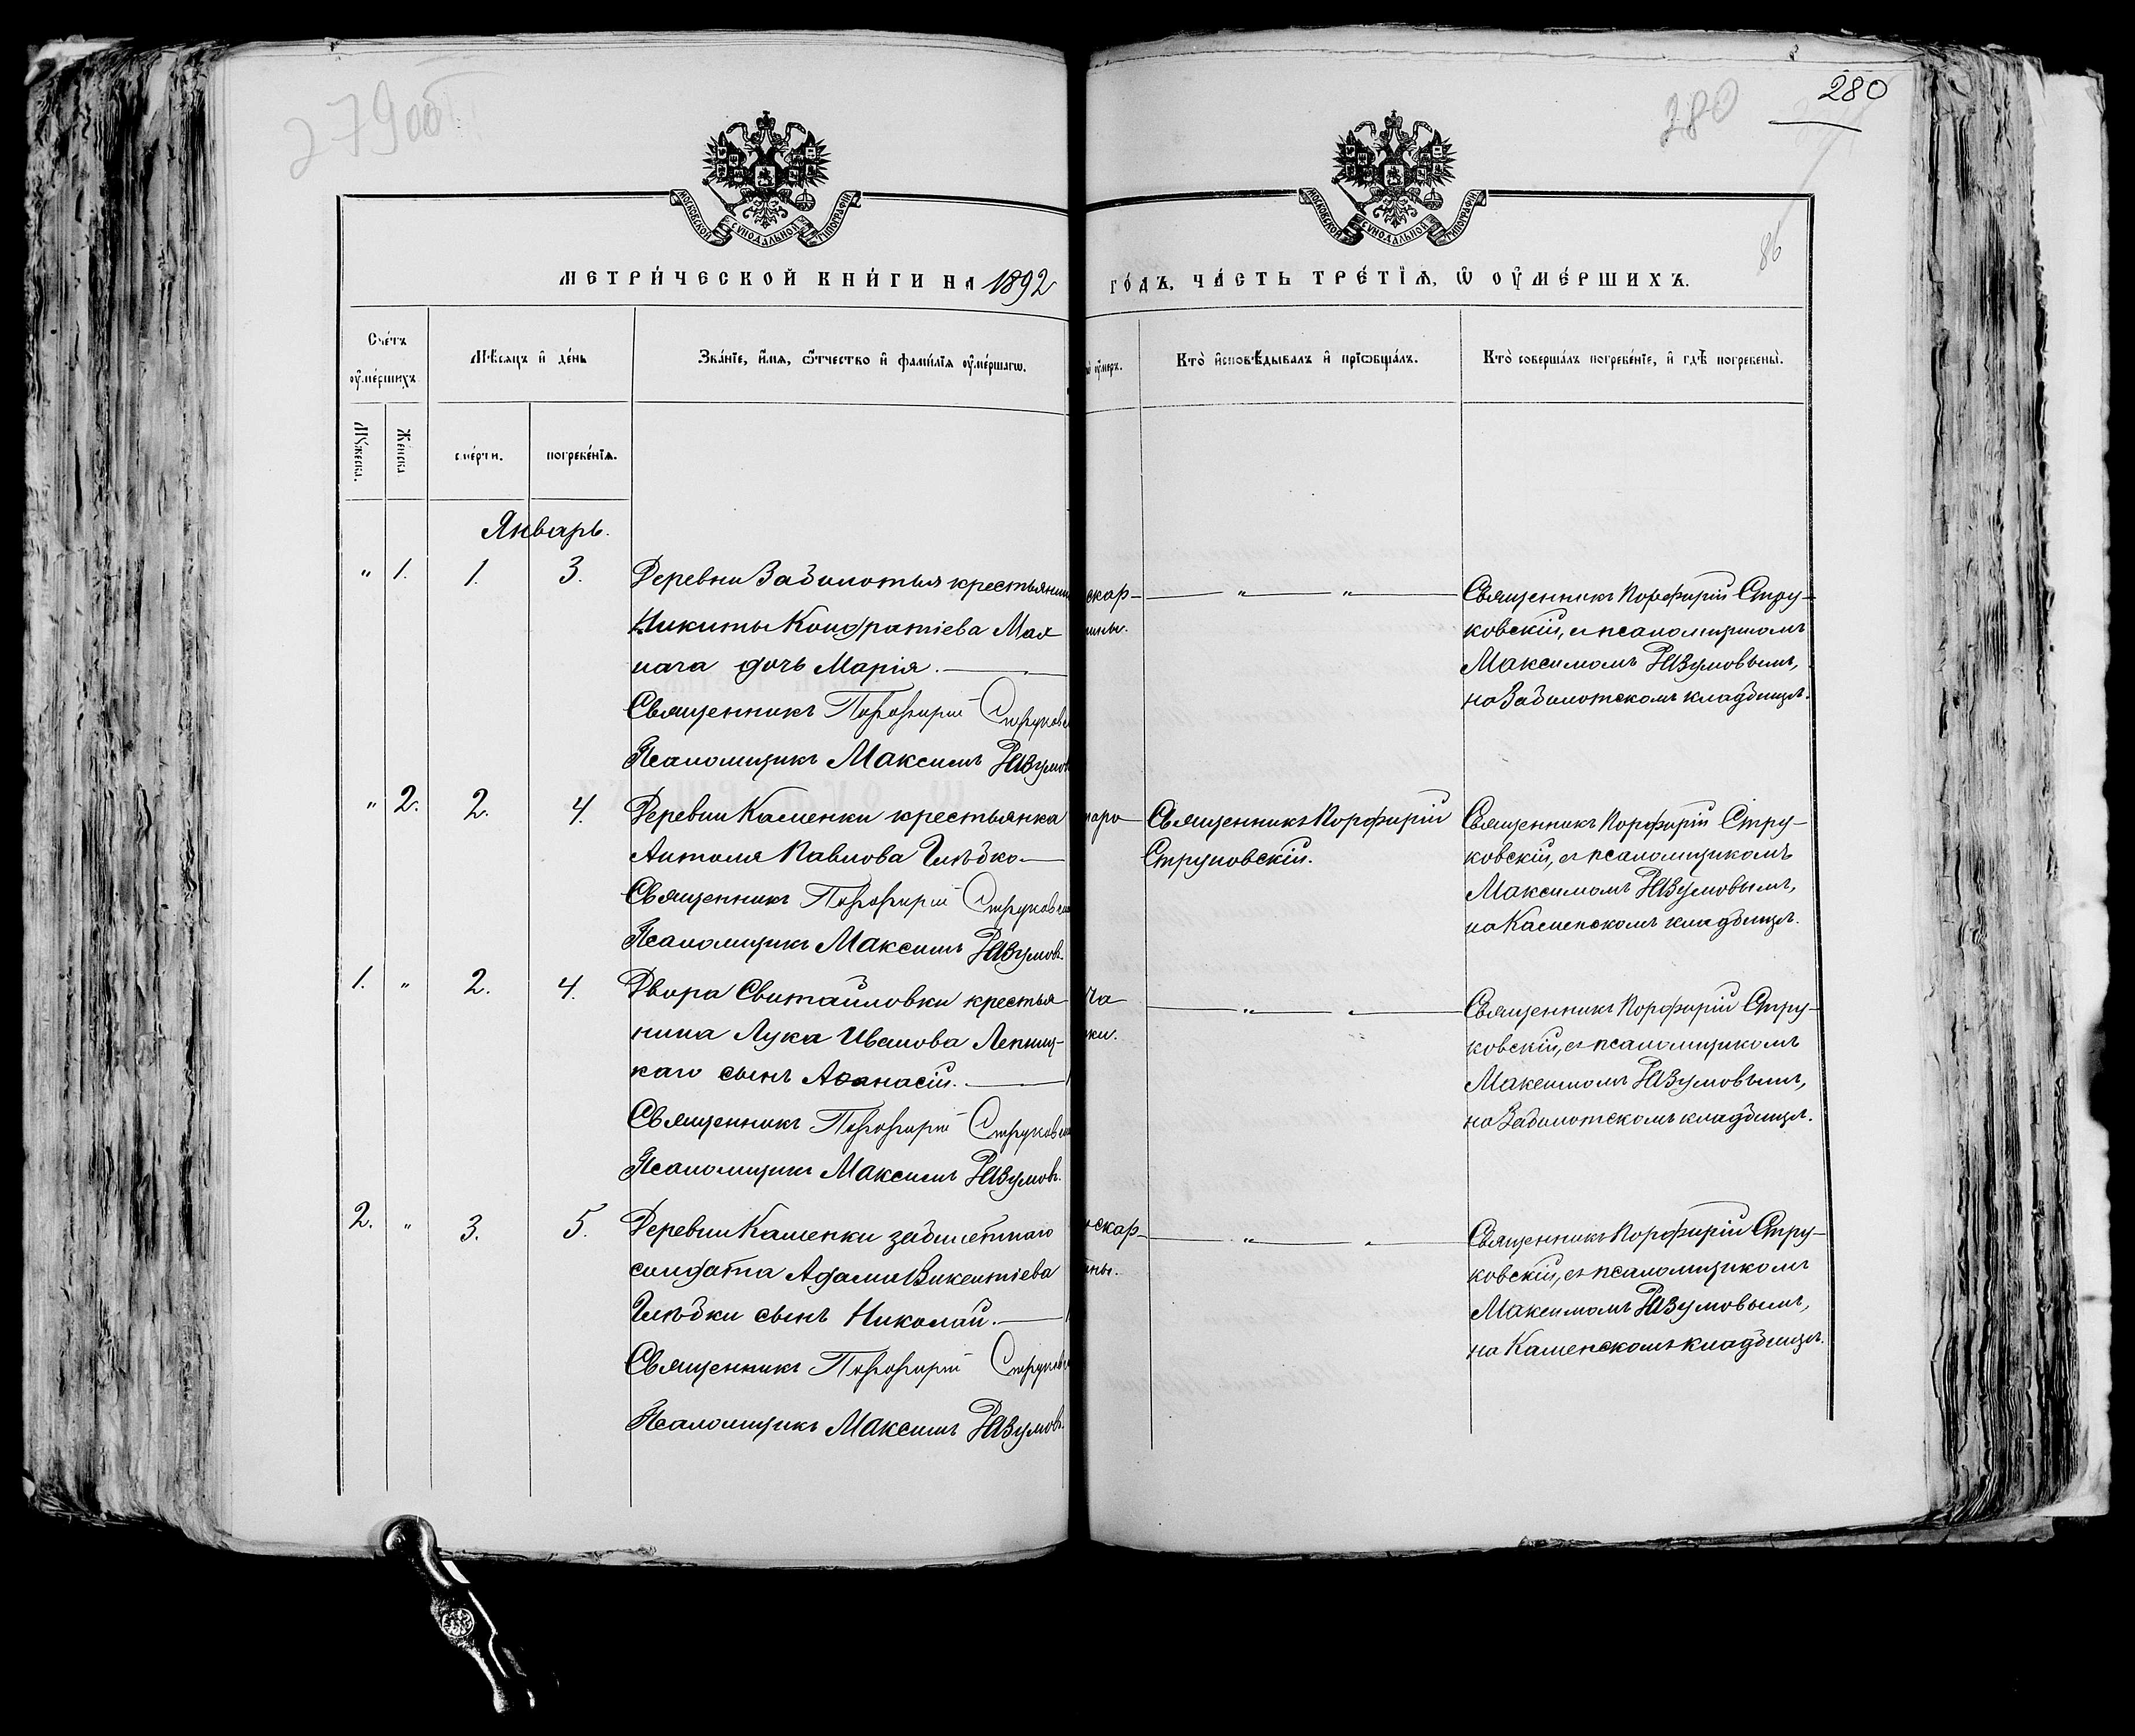 279об
280
280
86
МОСКОВСКОЙ СѴНОДАЛЬНОЙ ТИПОГРАФІИ
МОСКОВСКОЙ СѴНОДАЛЬНОЙ ТИПОГРАФІИ
МЕТРИ́ЧЕСКОЙ КНИ́ГИ НА 1892 ГО́ДЪ, ЧА́СТЬ ТРЕ́ТІѦ, Ѡ҆ ОУ҆МЕ́РШИХЪ.
Сче́тъ оу҆ме́ршихъ
Мѣ́сяцъ и҆ де́нь
Зва́нїе, и҆́мя, ѻ҆́тчество и҆ фами́лїя оу҆ме́ршагѡ.
оу҆́меръ.
Кто̀ и҆сповѣ́дывалъ и҆ прїѡбща́лъ.
Кто̀ соверша́лъ погребе́нїе, и҆ гдѣ̀ погребены̀.
Му́жеска.
Же́нска
сме́рти.
погребе́нїя.
Январь.
" 1. 1. 3.
Деревни Заболотья крестьянин
Никиты Кондратіева Мах
нача дочь Марія.
Священникъ Порфирій Струковс
Псаломщикъ Максимъ Разумов
скар-
тины.
" "
Священникъ Порфирій Стру-
ковскій, съ псаломщикомъ
Максимомъ Разумовымъ,
на Заболотскомъ кладбищѣ.
" 2. 2. 4.
Деревни Каменки крестьянка
Антоля Павлова Глѣбко
Священникъ Порфирій Струковскі
Псаломщикъ Максимъ Разумовъ.
таро
Священникъ Порфирій
Струковскій.
Священникъ Порфирій Стру-
ковскій, съ псаломщикомъ
Максимомъ Разумовымъ,
на Каменскомъ кладбищѣ.
1. " 2. 4.
Двора Свитайловки крестья
нина Лука Иванова Лепниц-
каго сынъ Аѳанасій.
Священникъ Порфирій Струковскі
Псаломщикъ Максимъ Разумовъ.
ча
ки.
" "
Священникъ Порфирій Стру-
ковскій, съ псаломщикомъ
Максимомъ Разумовымъ,
на Заболотскомъ кладбищѣ.
2. " 3. 5.
Деревни Каменки забилетнаго
солдата Адама Викентіева
Глѣбки сынъ Николай.
Священникъ Порфирій Струковск
Псаломщикъ Максимъ Разумовъ.
скар-
ины.
" "
Священникъ Порфирій Стру-
ковскій, съ псаломщикомъ
Максимомъ Разумовымъ,
на Каменскомъ кладбищѣ.